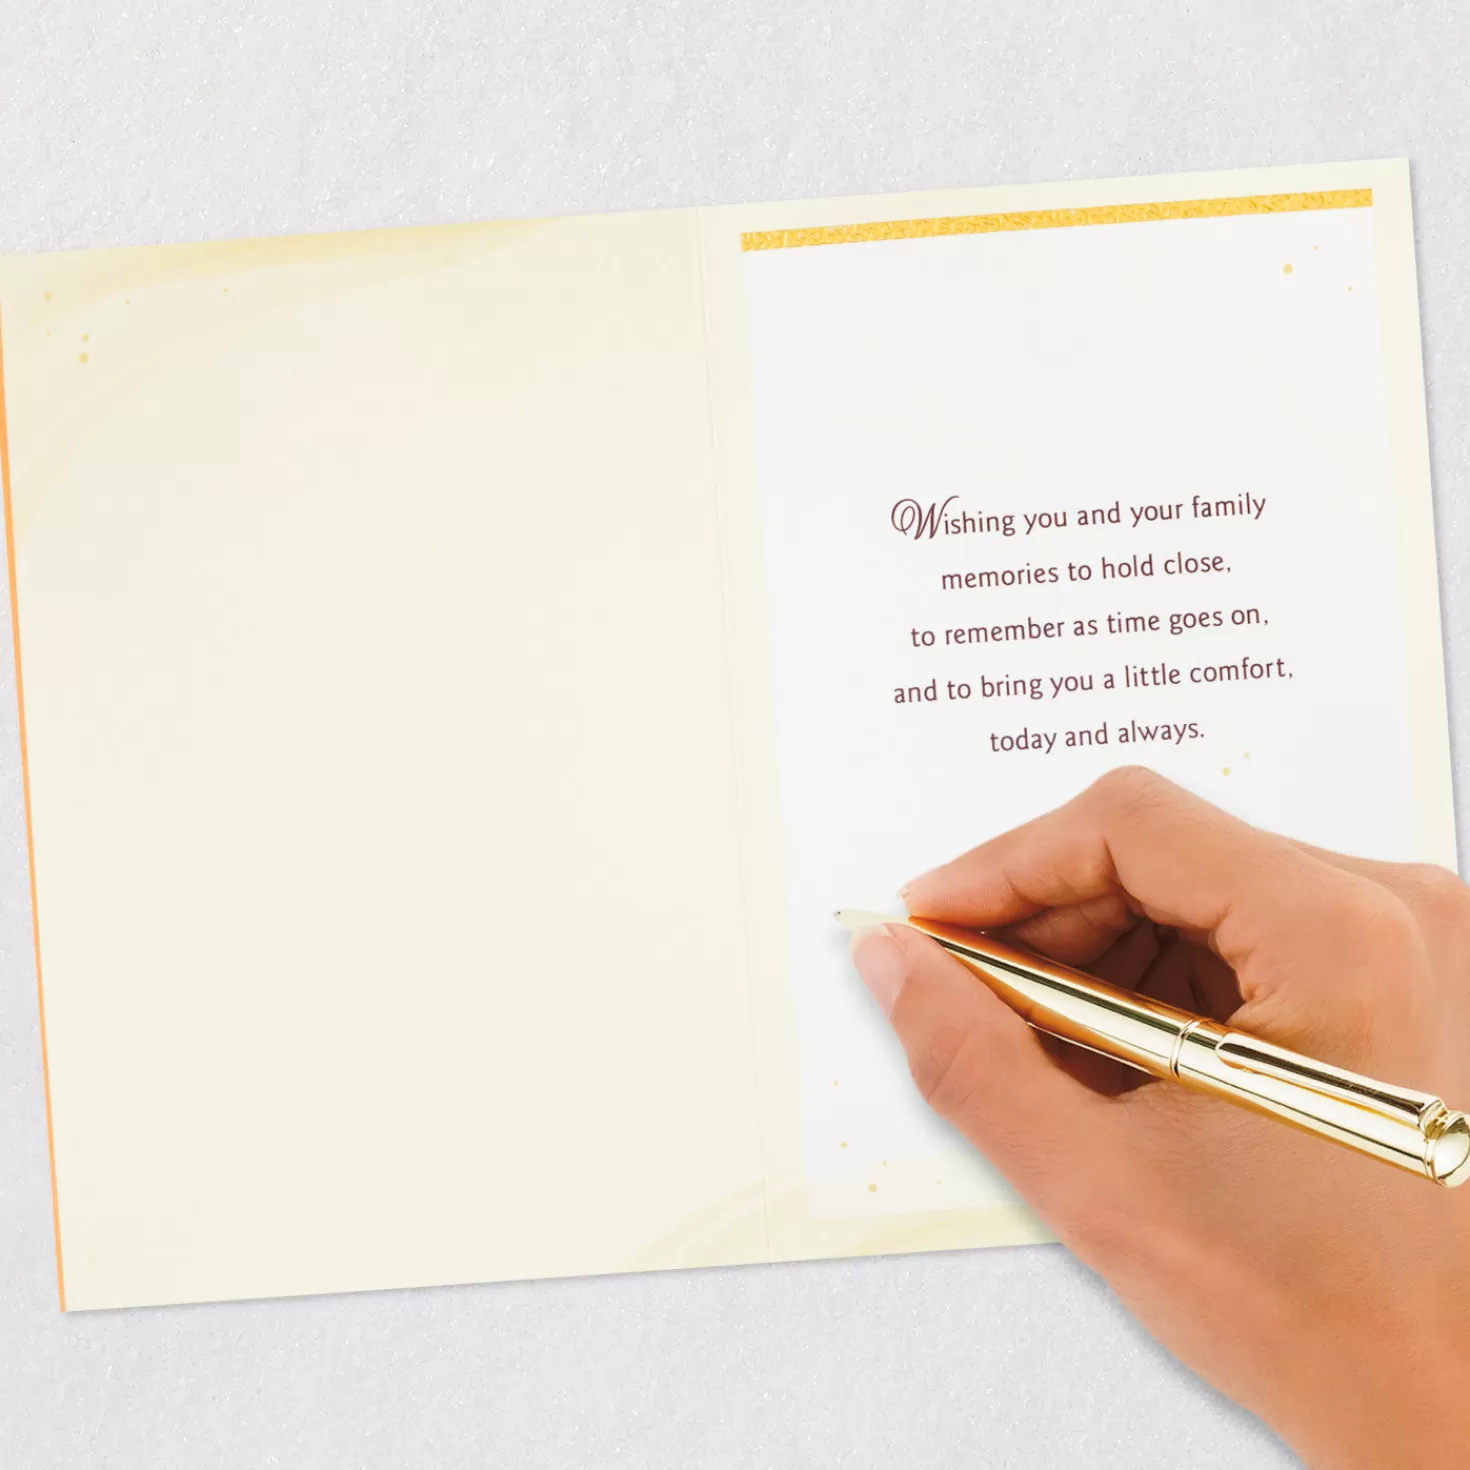 Wishing you and your family
memories to hold close,
to remember as time goes on,
and to bring you a little comfort,
today and always.